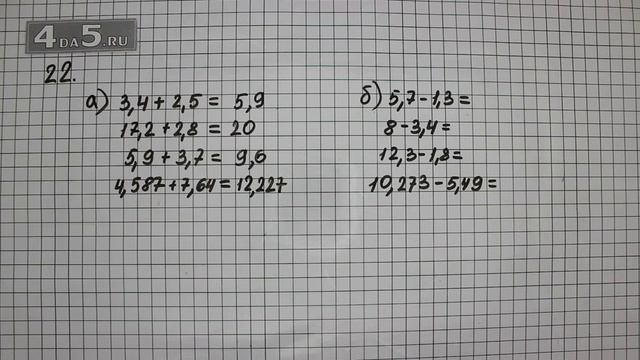 4DA5.RU
22.
а) 3,4 + 2,5 = 5,9
17,2 + 2,8 = 20
5,9 + 3,7 = 9,6
4,587 + 7,64 = 12,227
б) 5,7 - 1,3 =
8 - 3,4 =
12,3 - 1,8 =
10,273 - 5,49 =